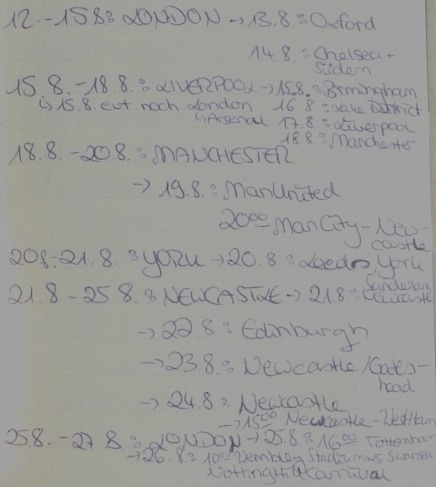 12.-15.8.: LONDON → 13.8.: Oxford
14.8.: Chelsea +
Süden
15.8.-18.8.: LIVERPOOL → 15.8.: Birmingham
↳ 15.8. evt. noch London 16.8.: Lake District
↳ Arsenal 17.8.: Liverpool
18.8.: Manchester
18.8.-20.8.: MANCHESTER
→ 19.8.: ManUnited
20⁰⁰ ManCity-New-
castle
20.8.-21.8.: YORK → 20.8.: Leeds York
21.8.-25.8.: NEWCASTLE → 21.8.: Sunderland
Newcastle
→ 22.8.: Edinburgh
→ 23.8.: Newcastle/Gates-
head
→ 24.8.: Newcastle
→ 15⁰⁰ Newcastle-West Ham
25.8.-27.8.: LONDON → 25.8.: 16⁰⁰ Tottenham
→ 26.8.: 10⁰⁰ Wembley Stadium
Notting Hill Carnival